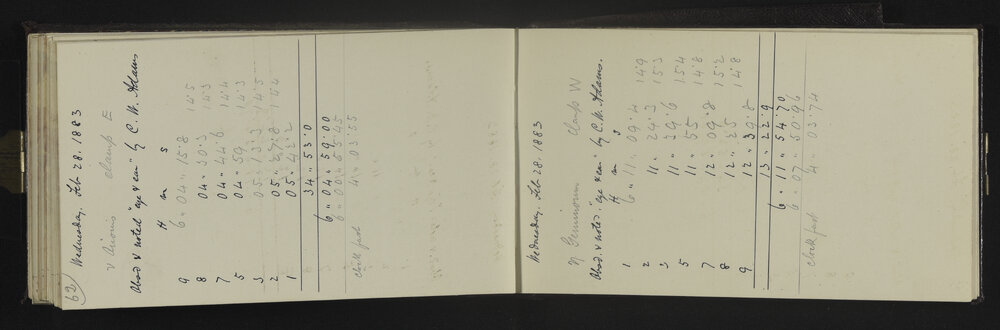 62)
Wednesday. Feb 28. 1883
ν Orionis clamp E
Obsd. & noted "eye & ear" by C. W. Adams
H m s
9 6 " 04 " 15.8 14.5
8 04 " 30.3 14.3
7 04 " 44.6 14.4
5 04 " 59. 14.3
3 05 " 13.3 14.5
2 05 " 27.8 14.4
1 05 " 42.2
34 " 53.0
6 " 04 " 59.00
6 " 00 " 55.45
clock fast 4 " 03.55
Wednesday. Feb 28. 1883
η Geminorum clamp W
Obsd. & noted "eye & ear" by C. W. Adams.
H m s
1 6 " 11 " 09.4 14.9
2 11 " 24.3 15.3
3 11 " 39.6 15.4
5 11 " 55 14.8
7 12 " 09.8 15.2
8 12 " 25 14.8
9 12 " 39.8
13 " 22.9
6 " 11 " 54.70
6 " 07 " 50.96
clock fast 4 " 03.74